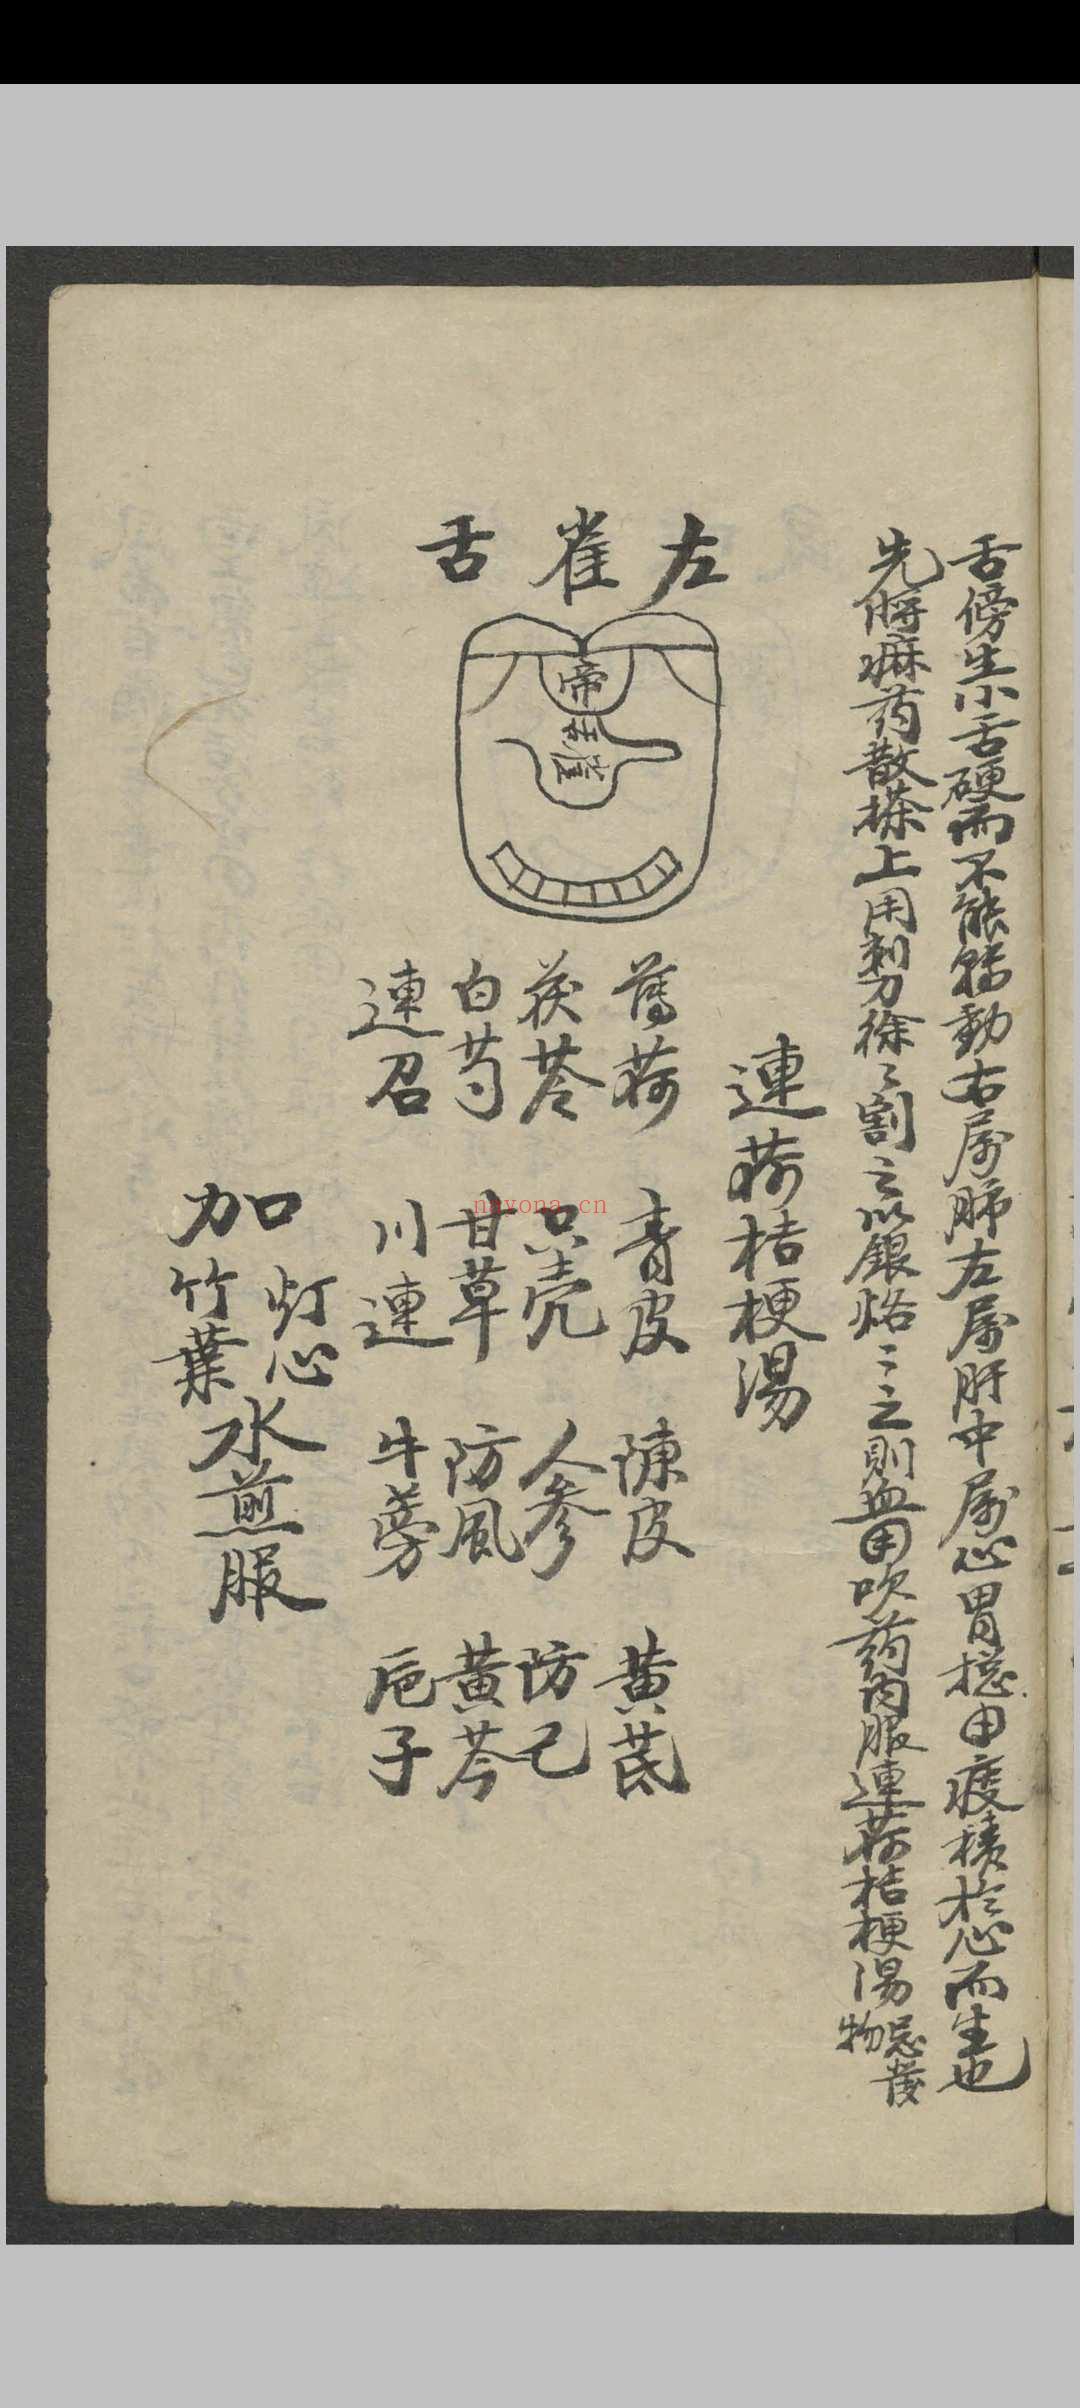 舌傍生小舌硬而不能轉動右属肺左属肝中属心胃揔由痰積於心而生也
先將痳药散搽上用剪刀徐〻割之以銀烙〻之則血用吹药内服連荷桔梗湯忌發物
左雀舌
帝
舌
連荷桔梗湯
薄荷 青皮 陳皮 黄芪
茯苓 只壳 人參 防己
白芍 甘草 防風 黄芩
連召 川連 牛蒡 卮子
加灯心竹葉水煎服
nayona.cn